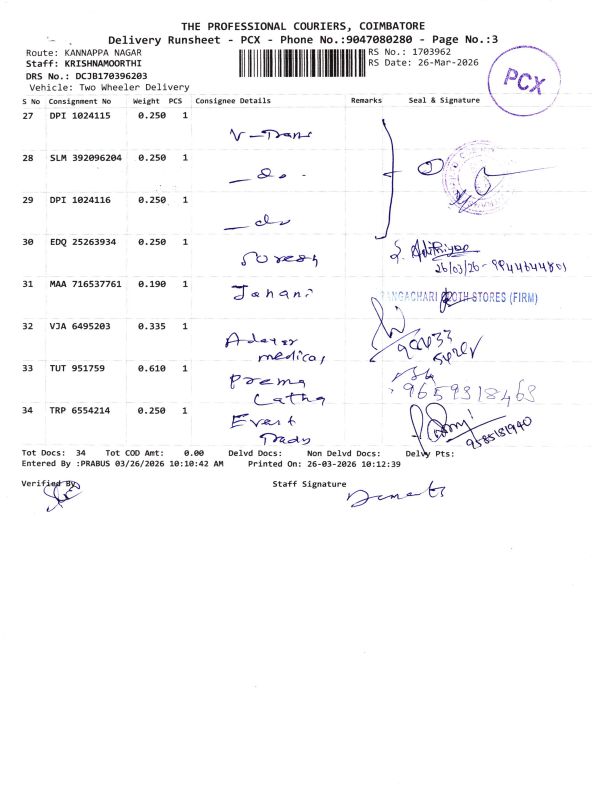 THE PROFESSIONAL COURIERS, COIMBATORE
Delivery Runsheet - PCX - Phone No.:9047080280 - Page No.:3
Route: KANNAPPA NAGAR
RS No.: 1703962
Staff: KRISHNAMOORTHI
RS Date: 26-Mar-2026
DRS No.: DCJB170396203
PCX
Vehicle: Two Wheeler Delivery
S No Consignment No Weight PCS Consignee Details Remarks Seal & Signature
27 DPI 1024115 0.250 1
V-Trans
28 SLM 392096204 0.250 1
- do -
29 DPI 1024116 0.250 1
- do
30 EDQ 25263934 0.250 1
Suresh
26/03/26 - 9944644801
31 MAA 716537761 0.190 1
Janani
RANGACHARI CLOTH STORES (FIRM)
32 VJA 6495203 0.335 1
medical
33 TUT 951759 0.610 1
Prema
Latha
9659318463
34 TRP 6554214 0.250 1
9585181940
Tot Docs: 34 Tot COD Amt: 0.00 Delvd Docs: Non Delvd Docs: Delvy Pts:
Entered By :PRABUS 03/26/2026 10:10:42 AM Printed On: 26-03-2026 10:12:39
Verified By
Staff Signature